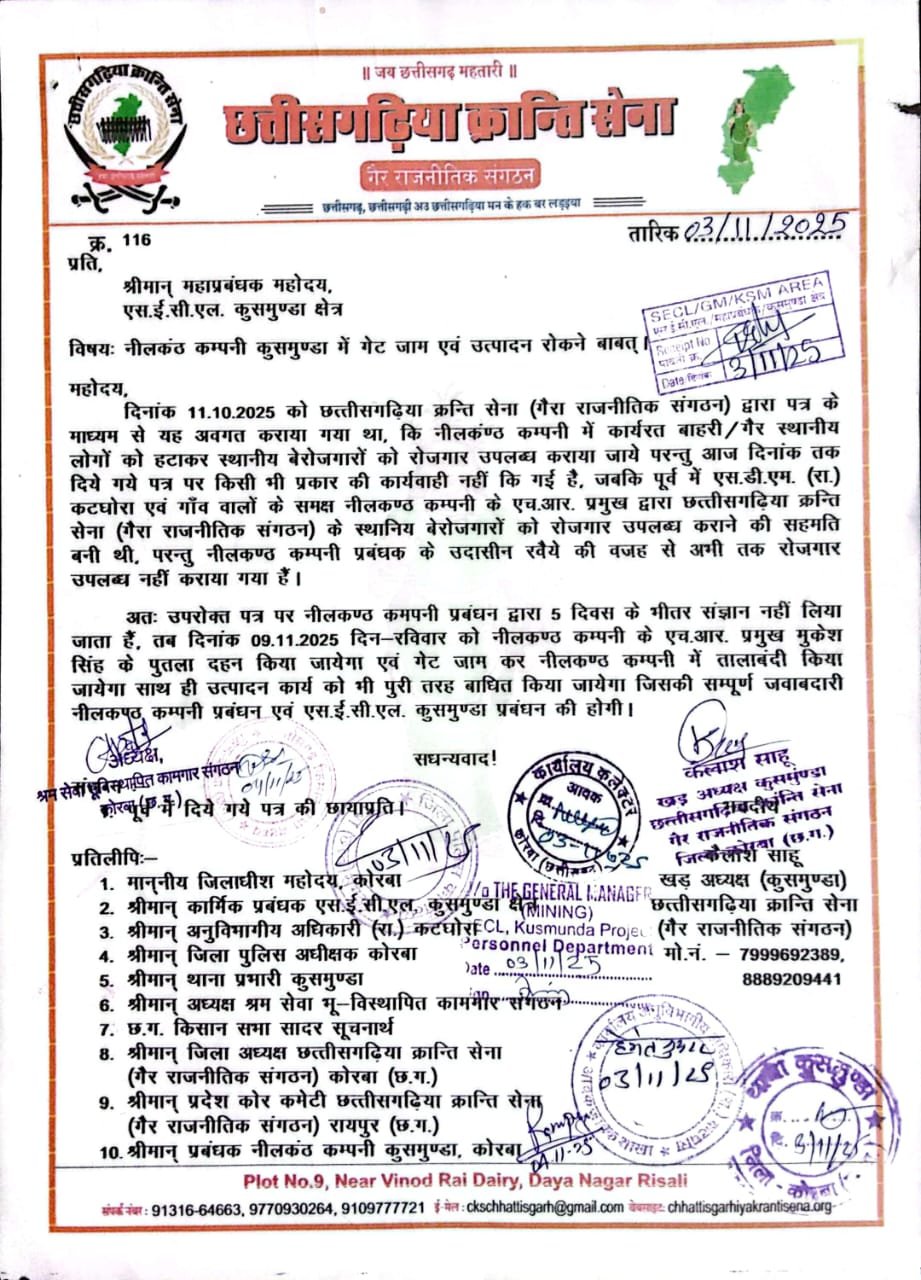 छत्तीसगढ़िया क्रान्ति सेना
॥ जय छत्तीसगढ़ महतारी ॥
छत्तीसगढ़िया क्रान्ति सेना
गैर राजनीतिक संगठन
छत्तीसगढ़, छत्तीसगढ़ी अउ छत्तीसगढ़िया मन के हक बर लड़इया
क्र. 116
तारिक 03/11/2025
प्रति,
श्रीमान् महाप्रबंधक महोदय,
एस.ई.सी.एल. कुसमुण्डा क्षेत्र
SECL/GM/KSM AREA
एस ई सी एल./महाप्रबंधक/कुसमुण्डा क्षेत्र
Receipt No
पावती क्र.
Date दिनांक 3/11/25
विषयः नीलकंठ कम्पनी कुसमुण्डा में गेट जाम एवं उत्पादन रोकने बाबत्।
महोदय,
दिनांक 11.10.2025 को छत्तीसगढ़िया क्रन्ति सेना (गैरा राजनीतिक संगठन) द्वारा पत्र के
माध्यम से यह अवगत कराया गया था, कि नीलकंण्ठ कम्पनी में कार्यरत बाहरी/गैर स्थानीय
लोगों को हटाकर स्थानीय बेरोजगारों को रोजगार उपलब्ध कराया जाये परन्तु आज दिनांक तक
दिये गये पत्र पर किसी भी प्रकार की कार्यवाही नहीं कि गई है, जबकि पूर्व में एस.डी.एम. (रा.)
कटघोरा एवं गाँव वालों के समक्ष नीलकंण्ठ कम्पनी के एच.आर. प्रमुख द्वारा छत्तीसगढ़िया क्रन्ति
सेना (गैरा राजनीतिक संगठन) के स्थानिय बेरोजगारों को रोजगार उपलब्ध कराने की सहमति
बनी थी, परन्तु नीलकण्ठ कम्पनी प्रबंधक के उदासीन रवैये की वजह से अभी तक रोजगार
उपलब्ध नहीं कराया गया हैं।
अतः उपरोक्त पत्र पर नीलकण्ठ कमपनी प्रबंधन द्वारा 5 दिवस के भीतर संज्ञान नहीं लिया
जाता हैं, तब दिनांक 09.11.2025 दिन–रविवार को नीलकण्ठ कम्पनी के एच.आर. प्रमुख मुकेश
सिंह के पुतला दहन किया जायेगा एवं गेट जाम कर नीलकण्ठ कम्पनी में तालाबंदी किया
जायेगा साथ ही उत्पादन कार्य को भी पुरी तरह बाधित किया जायेगा जिसकी सम्पूर्ण जवाबदारी
नीलकण्ठ कम्पनी प्रबंधन एवं एस.ई.सी.एल. कुसमुण्डा प्रबंधन की होगी।
सधन्यवाद!
अध्यक्ष,
श्रम सेवा भूविस्थापित कामगार संगठन
कोरबा (छ.ग.)
04/11/25
पूर्व में दिये गये पत्र की छायाप्रति।
कार्यालय कलेक्टर
आवक
कोरबा (छत्तीसगढ़)
कैलाश साहू
खड़ अध्यक्ष कुसमुण्डा
छत्तीसगढ़िया क्रान्ति सेना
गैर राजनीतिक संगठन
जिला कोरबा (छ.ग.)
भवदीय
03/11/25
प्रतिलीपिः–
1. मान्नीय जिलाधीश महोदय, कोरबा
2. श्रीमान् कार्मिक प्रबंधक एस.ई.सी.एल. कुसमुण्डा क्षेत्र
3. श्रीमान् अनुविभागीय अधिकारी (रा.) कटघोरा
4. श्रीमान् जिला पुलिस अधीक्षक कोरबा
5. श्रीमान् थाना प्रभारी कुसमुण्डा
6. श्रीमान् अध्यक्ष श्रम सेवा भू–विस्थापित कामगार संगठन
7. छ.ग. किसान सभा सादर सूचनार्थ
8. श्रीमान् जिला अध्यक्ष छत्तीसगढ़िया क्रान्ति सेना
(गैर राजनीतिक संगठन) कोरबा (छ.ग.)
9. श्रीमान् प्रदेश कोर कमेटी छत्तीसगढ़िया क्रान्ति सेना
(गैर राजनीतिक संगठन) रायपुर (छ.ग.)
10. श्रीमान् प्रबंधक नीलकंठ कम्पनी कुसमुण्डा, कोरबा
कैलाश साहू
खड़ अध्यक्ष (कुसमुण्डा)
छत्तीसगढ़िया क्रान्ति सेना
(गैर राजनीतिक संगठन)
मो.नं. – 7999692389,
8889209441
THE GENERAL MANAGER
(MINING)
SECL, Kusmunda Project
Personnel Department
Date 03/11/25
हेमंत कुमार
03/11/25
थाना कुसमुण्डा
क्र.
दि. 3/11/25
जिला - कोरबा
Plot No.9, Near Vinod Rai Dairy, Daya Nagar Risali
संपर्क नंबर : 91316-64663, 9770930264, 9109777721 ई-मेल : ckschhattisgarh@gmail.com वेबसाइट: chhattisgarhiyakrantisena.org